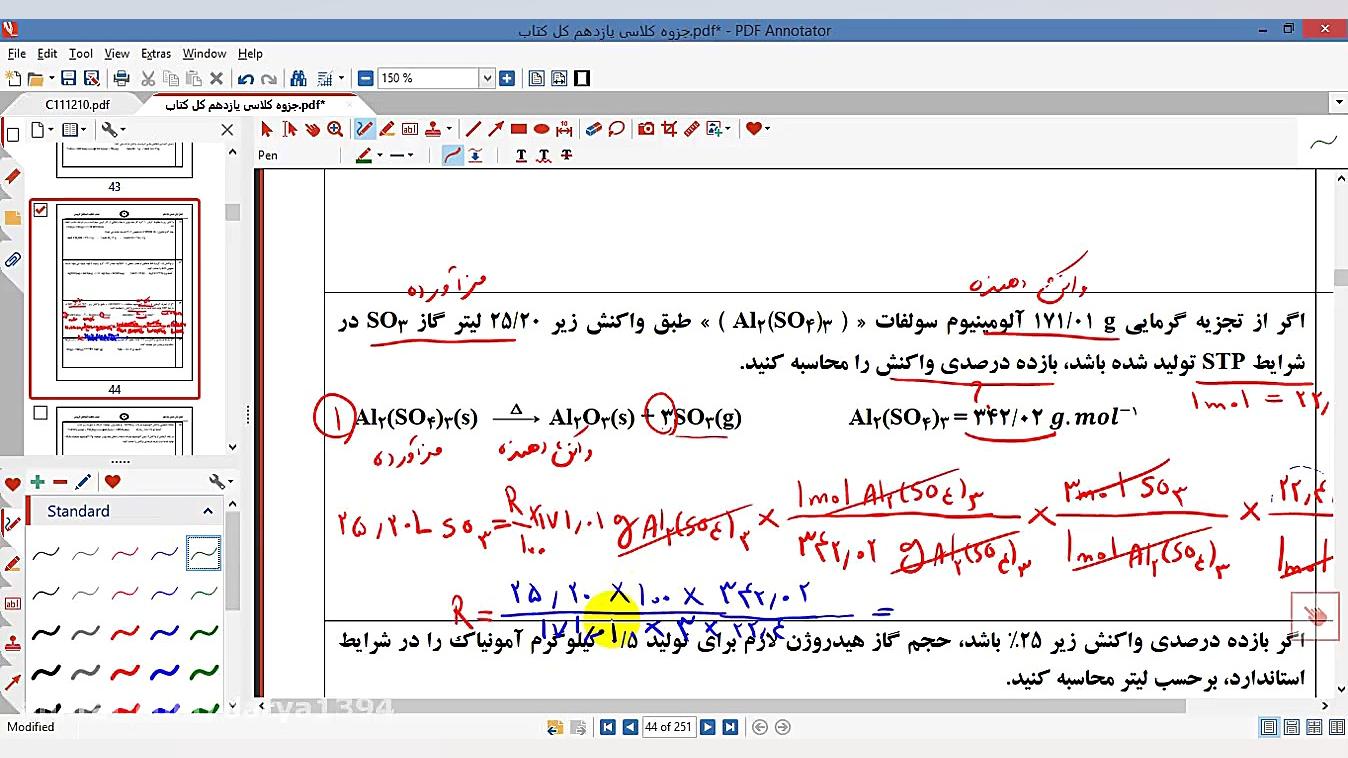 جزوه کلاسی یازدهم کل کتاب.pdf* - PDF Annotator
File Edit Tool View Extras Window Help
150 %
C111210.pdf
جزوه کلاسی یازدهم کل کتاب.pdf*
Pen
43
44
Standard
واکنش دهنده
فرآورده
اگر از تجزیه گرمایی ۱۷۱/۰۱ g آلومینیوم سولفات « Al۲(SO۴)۳ ) » طبق واکنش زیر ۲۵/۲۰ لیتر گاز SO۳ در
شرایط STP تولید شده باشد، بازده درصدی واکنش را محاسبه کنید.
1mol = ۲۲,
۱ Al۲(SO۴)۳(s) Δ⟶ Al۲O۳(s) + ۳SO۳(g) Al۲(SO۴)۳ = ۳۴۲/۰۲ g.mol⁻¹
فرآورده واکنش دهنده
۲۵,۲۰ L SO۳ = R/۱۰۰ × ۱۷۱,۰۱ g Al۲(SO۴)۳ × 1mol Al۲(SO۴)۳ / ۳۴۲,۰۲ g Al۲(SO۴)۳ × ۳mol SO۳ / 1mol Al۲(SO۴)۳ × ۲۲,۴ / 1mol
R = ۲۵,۲۰ × ۱۰۰ × ۳۴۲,۰۲ / ۱۷۱,۰۱ × ۳ × ۲۲,۴ =
اگر بازده درصدی واکنش زیر ۲۵٪ باشد، حجم گاز هیدروژن لازم برای تولید ۱/۵ کیلوگرم آمونیاک را در شرایط
استاندارد، برحسب لیتر محاسبه کنید.
Modified
44 of 251